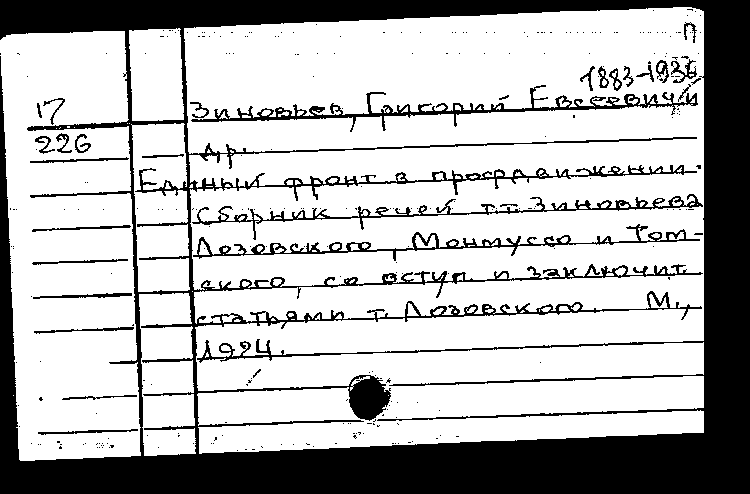 П
1883-1936
17
226
Зиновьев, Григорий Евсеевич и
др.
Единый фронт в профдвижении.
Сборник речей т.т. Зиновьева
Лозовского, Монмуссо и Том-
ского, со вступ. и заключит.
статьями т. Лозовского. М.,
1924.